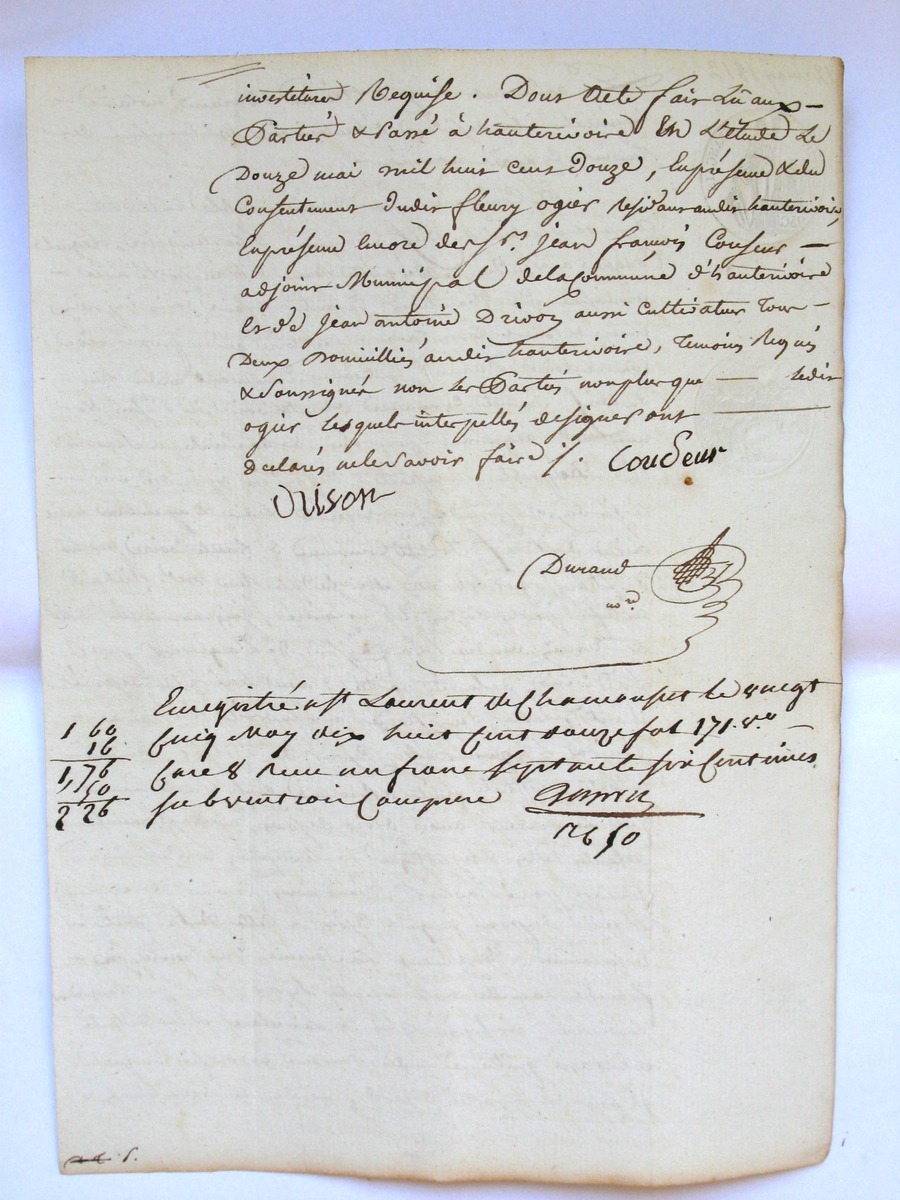 investiture Requise. Dont acte fait Lu aux
Parties & Passé à hauterivoire En L'etude Le
Douze mai mil huit cent Douze, Enprésence & du
Consentement dudit fleury ogier residant audit hauterivoire,
Enprésence Encore de Sr. jean francois Couseur
adjoint Municipal delacommune d'hauterivoire
Et de jean antoine Drivon aussi Cultivateur Tous
Deux Domiciliés audit hauterivoire, Temoins Requis
& Soussignés non les Parties nonplus que ledit
ogier Lesquels interpellés de signer ont
declarés nele Savoir faire /. Couseur
Drivon
Durand
nore
Enregistré a St Laurent de Chamousset le vingt
1 60 Cinq May dix huit Cent douze fol 171 vo
16
1,76 Case 8 Recu un franc septante six Centimes
50
2 26 subvention Comprise
26 50